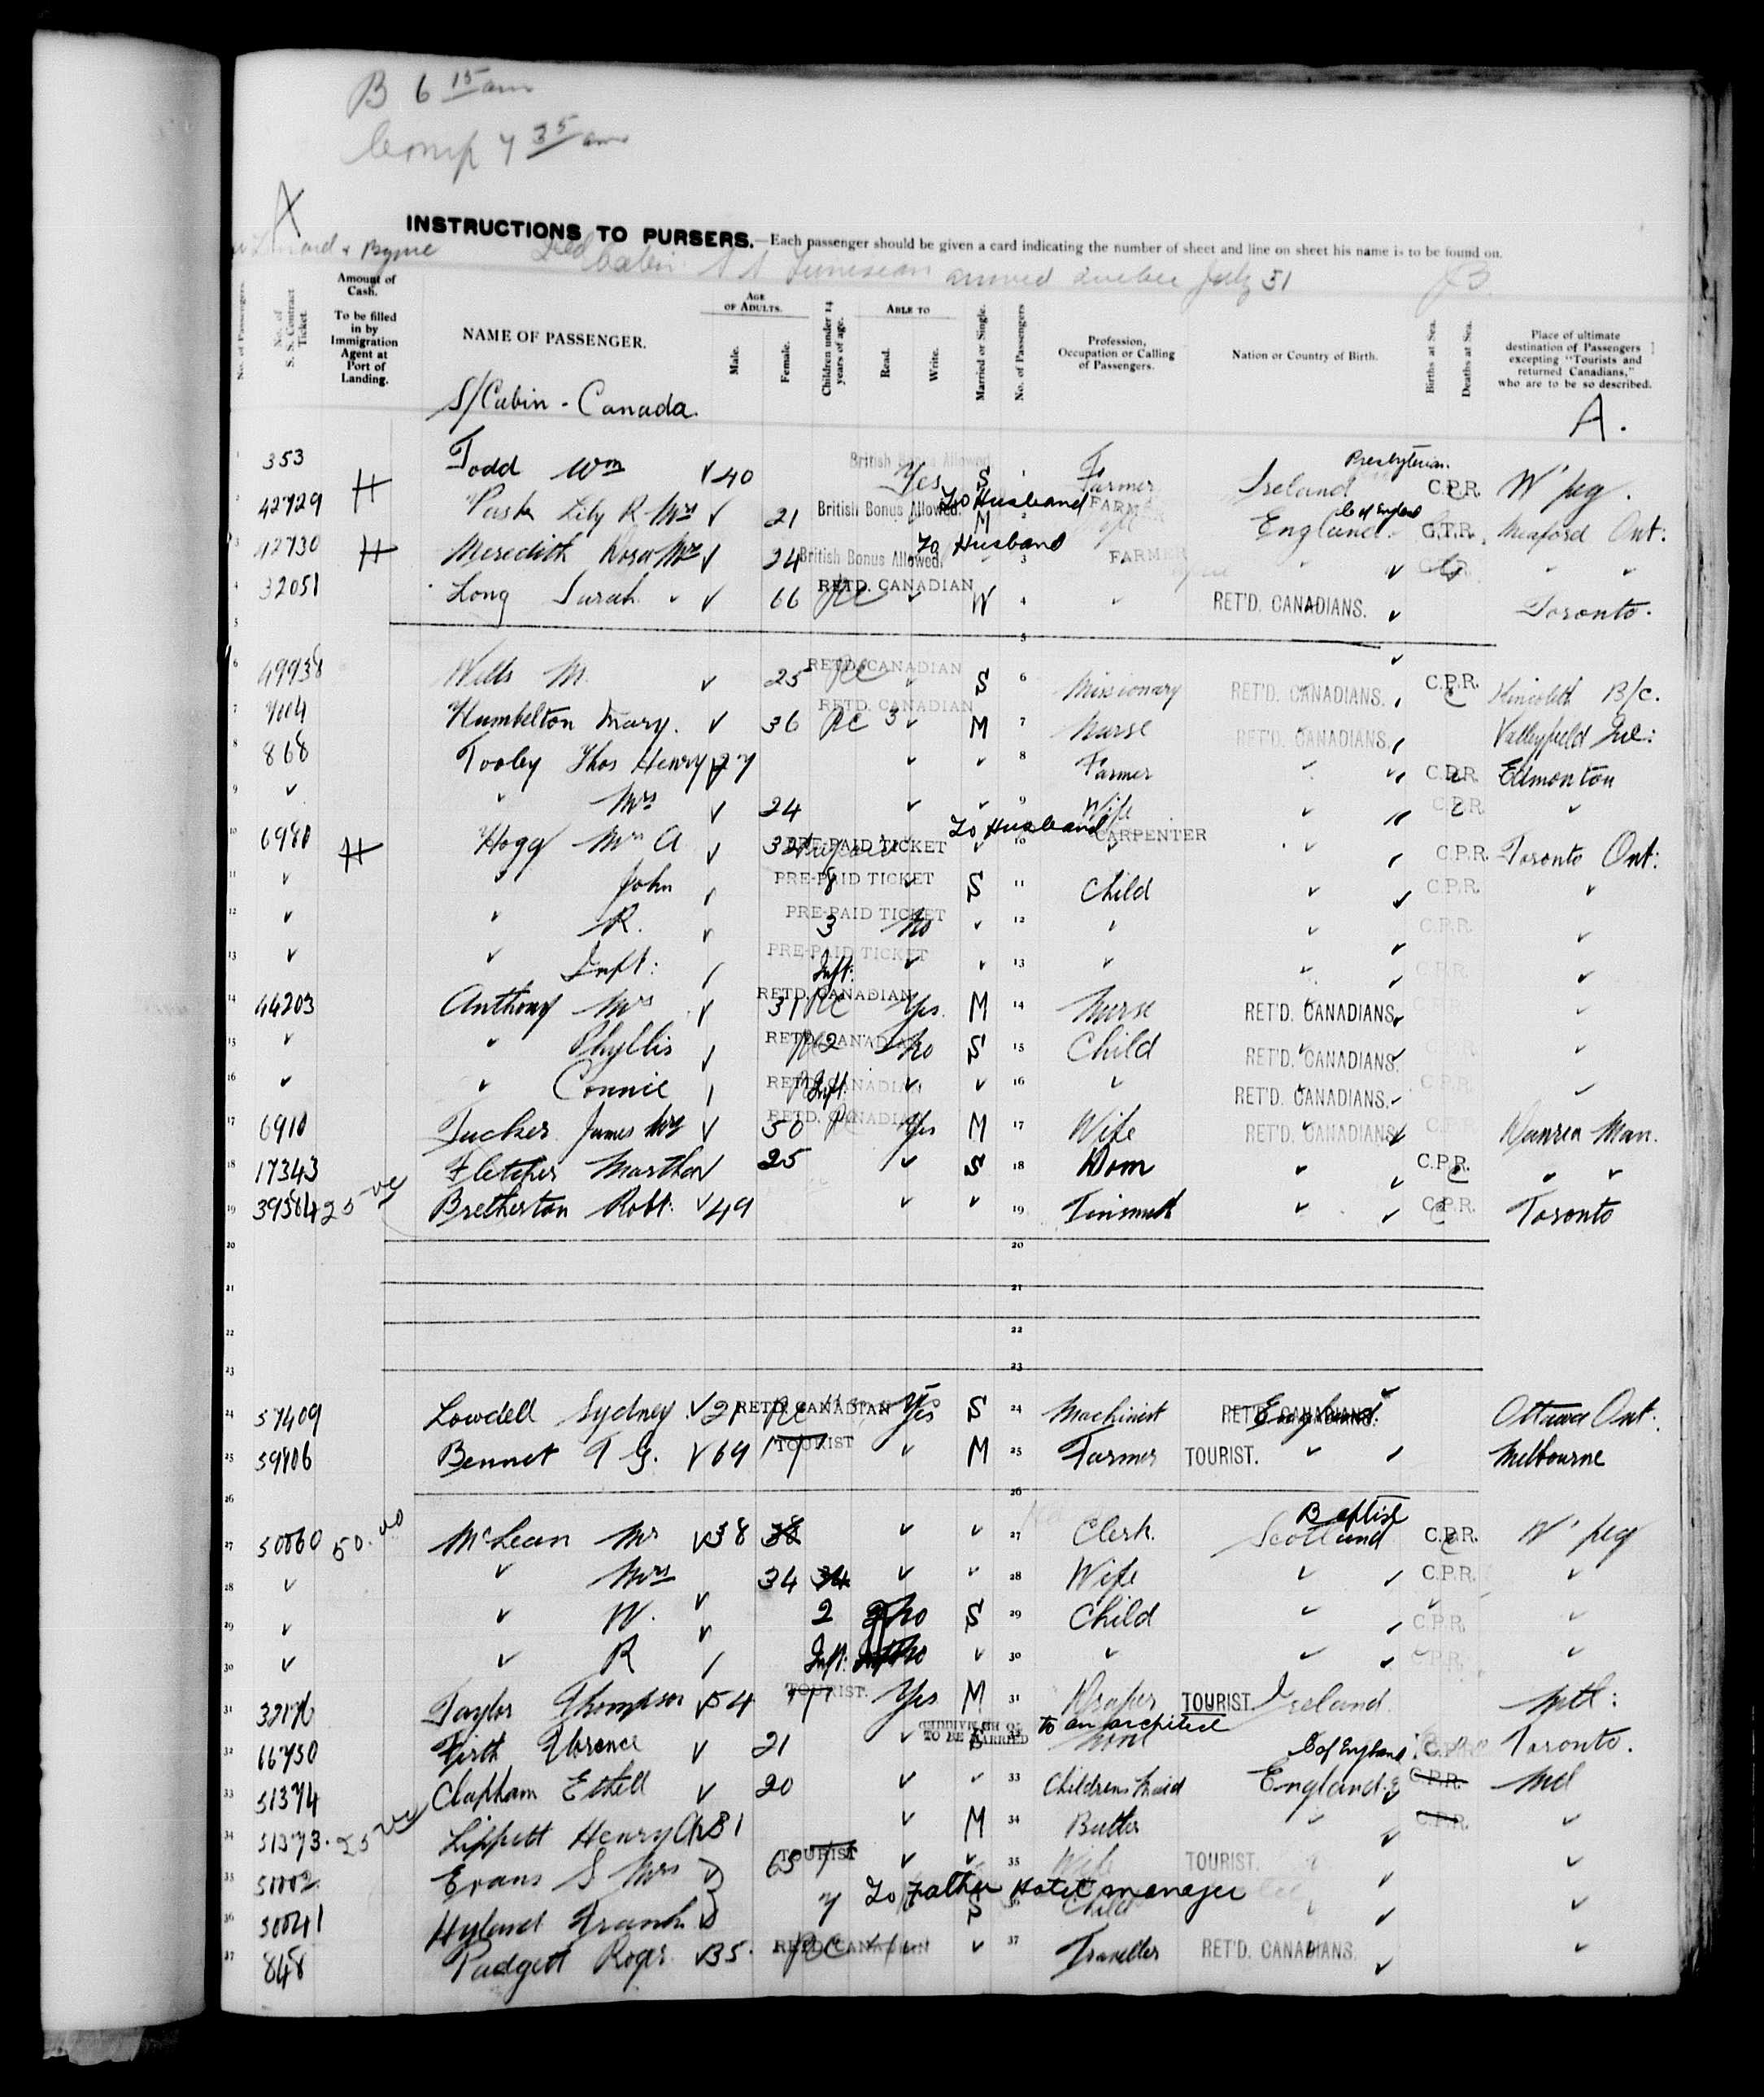 B 6 15 am
Comp 7 35 am
A
INSTRUCTIONS TO PURSERS.—Each passenger should be given a card indicating the number of sheet and line on sheet his name is to be found on.
& Byrne 2nd Cabin S S Tunisian arrived Quebec July 31
No. of Passengers.
No. of S. S. Contract Ticket.
Amount of Cash. To be filled in by Immigration Agent at Port of Landing.
NAME OF PASSENGER.
AGE OF ADULTS. Male. Female.
Children under 14 years of age.
ABLE TO Read. Write.
Married or Single.
No. of Passengers
Profession, Occupation or Calling of Passengers.
Nation or Country of Birth.
Births at Sea.
Deaths at Sea.
Place of ultimate destination of Passengers excepting "Tourists and returned Canadians," who are to be so described.
S/Cabin - Canada.
A.
1 353 Todd Wm ✓ 40 British Bonus Allowed Yes S 1 Farmer Ireland Presbyterian C.P.R. W'peg.
2 42729 H Pask Lily R Mrs ✓ 21 British Bonus Allowed. To Husband M 2 FARMER England C of England G.T.R. Meaford Ont:
3 42730 H Meredith Rosa Mrs ✓ 24 British Bonus Allowed. To Husband 3 FARMER ✓ ✓ ✓
4 32051 Long Sarah ✓ ✓ 66 RETD. CANADIAN RC ✓ W 4 ✓ RET'D. CANADIANS. ✓ Toronto.
5 5
6 49938 Wills M. ✓ 25 RETD. CANADIAN RC ✓ S 6 Missionary RET'D. CANADIANS. C.P.R. Kincolith B/C.
7 Humbelton Mary. ✓ 36 RETD. CANADIAN RC 3 ✓ M 7 Nurse RET'D. CANADIANS. Valleyfield Que:
8 868 Tooley Thos Henry 27 ✓ ✓ 8 Farmer ✓ C.P.R. Edmonton
9 ✓ ✓ Mrs ✓ 24 ✓ ✓ 9 Wife ✓ C.P.R. ✓
10 6980 H Hogg Mrs A ✓ 32 PRE-PAID TICKET To Husband ✓ 10 CARPENTER ✓ C.P.R. Toronto Ont:
11 ✓ ✓ John 8 PRE-PAID TICKET ✓ S 11 Child ✓ ✓ C.P.R. ✓
12 ✓ ✓ R. ✓ 3 PRE-PAID TICKET No ✓ 12 ✓ ✓ ✓ C.P.R. ✓
13 ✓ ✓ Inft: PRE-PAID TICKET Inft: ✓ ✓ 13 ✓ ✓ ✓ C.P.R. ✓
14 44203 Anthony Mrs ✓ 31 RETD. CANADIAN RC Yes. M 14 Nurse RET'D. CANADIANS. ✓
15 ✓ ✓ Phyllis RETD. CANADIAN RC 2 No S 15 Child RET'D. CANADIANS. ✓ ✓
16 ✓ ✓ Connie RETD. CANADIAN Inft. ✓ ✓ 16 ✓ RET'D. CANADIANS. ✓ C.P.R. ✓
17 6910 Tucker James Mrs ✓ 50 RETD. CANADIAN RC Yes M 17 Wife RET'D. CANADIANS ✓ Man.
18 17343 Fletcher Martha ✓ 25 ✓ S 18 Dom ✓ ✓ C.P.R. ✓ ✓
19 39584 25 Bretherton Robt. ✓ 49 ✓ ✓ 19 Tinsmith ✓ ✓ C.P.R. Toronto
20 20
21 21
22 22
23 23
24 57409 Lowdell Sydney. ✓ 21 RETD. CANADIAN RC Yes S 24 Machinist RET'D. CANADIANS. England. Ottawa Ont.
25 59806 Bennet T G. ✓ 69 TOURIST ✓ M 25 Farmer TOURIST. ✓ Melbourne
26 26
27 50060 50.00 McLean Mr ✓ 38 38 ✓ ✓ 27 Clerk. Scotland Baptist C.P.R. W'peg
28 ✓ ✓ Mrs ✓ 34 34 ✓ ✓ 28 Wife ✓ ✓ C.P.R. ✓
29 ✓ ✓ W. ✓ 2 No S 29 Child ✓ ✓ C.P.R. ✓
30 ✓ ✓ R Inft. No ✓ 30 ✓ ✓ ✓ C.P.R. ✓
31 Taylor Thompson ✓ 54 TOURIST. Yes M 31 Draper TOURIST. Ireland. Mtl:
32 66750 Firth Florence ✓ 21 ✓ TO BE MARRIED S to an architect None C of England C.P.R. Toronto.
33 51374 Clapham Ethel ✓ 20 ✓ ✓ 33 Childrens Maid England. C.P.R. Mtl
34 51373. 25 Lippett Henry 31 ✓ M 34 Butler ✓ ✓ C.P.R. ✓
35 Evans S Mrs ✓ 65 TOURIST ✓ ✓ 35 Wife TOURIST. ✓ ✓
36 50041 Hyland Frank ✓ 7 To Father Hotel manager S 36 Child ✓ ✓
37 848 Padgett Roger ✓ 35. RETD. CANADIAN RC ✓ ✓ 37 Traveller RET'D. CANADIANS. ✓ ✓